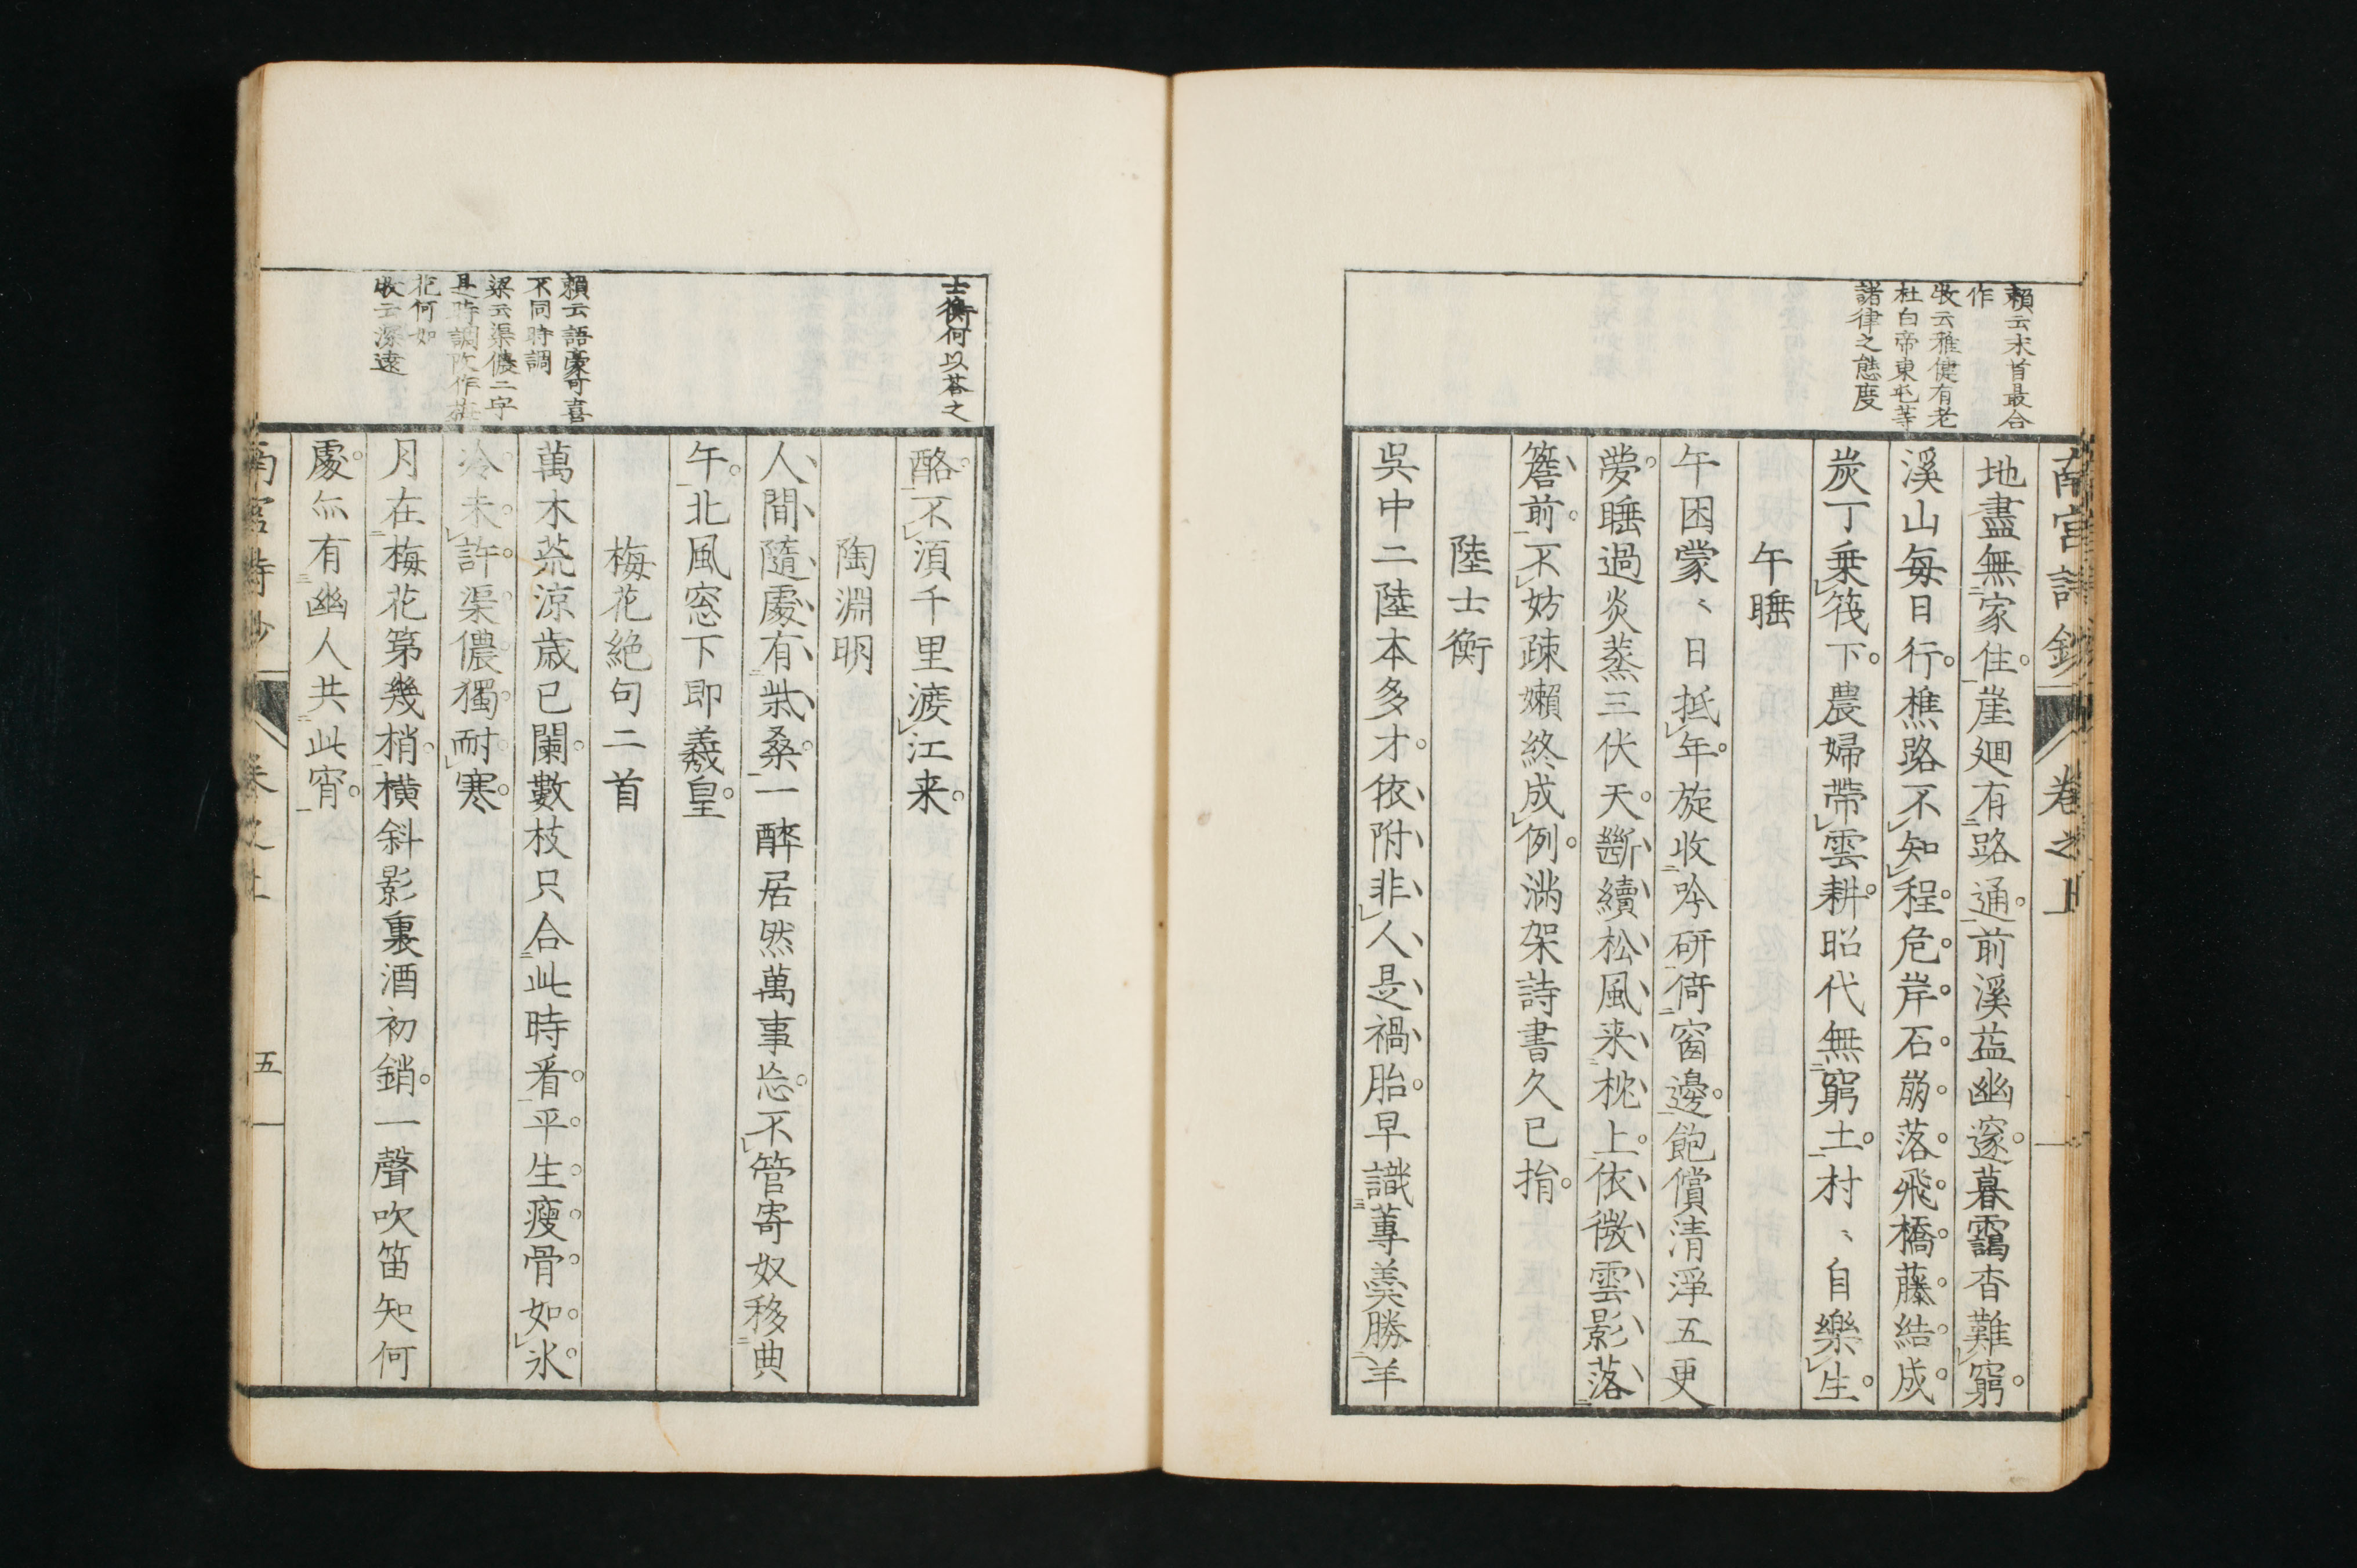 南宮詩鈔 卷之上
賴云末首最合
作
牧云雅健有老
杜白帝東屯等
諸律之態度
地盡無家住崖廻有路通前溪益幽邃暮靄杳難窮
溪山每日行樵路不知程危岸石崩落飛橋藤結成
炭丁乗筏下農婦帶雲耕昭代無窮土村〻自樂生
午睡
午困蒙〻日抵年旋收吟研倚窗邊飽償清淨五更
夢睡過炎蒸三伏天斷續松風来枕上依微雲影落
簷前不妨疎嬾終成例満架詩書久已捐
陸士衡
吳中二陸本多才依附非人是禍胎早識蓴羹勝羊
士衡何以荅之
賴云語豪可喜
不同時調
梁云渠儂二字
是時調改作梅
花何如
牧云深遠
酪不湏千里渡江来
陶淵明
人間隨處有柴桑一醉居然萬事忘不管寄奴移典
午北風窓下即羲皇
梅花絶句二首
萬木荒涼歳已闌數枝只合此時看平生瘦骨如氷
冷未許渠儂獨耐寒
月在梅花第幾梢横斜影裏酒初銷一聲吹笛知何
處亦有幽人共此宵
南宮詩鈔 卷之上 五